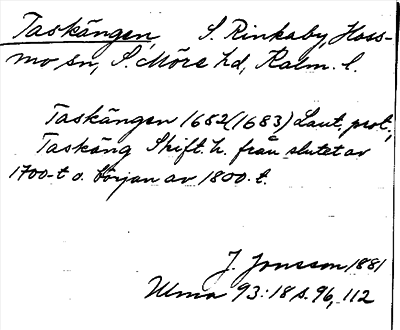 Taskängen, S. Rinkaby, Hoss-
mo sn, S. Möre hd, Kalm. l.
Taskängen 1682 (1683) Laut. prot.,
Taskäng Skift. h. från slutet av
1700-t o. början av 1800-t.
J. Jonsson 1881
Ulma 93:18 s. 96, 112